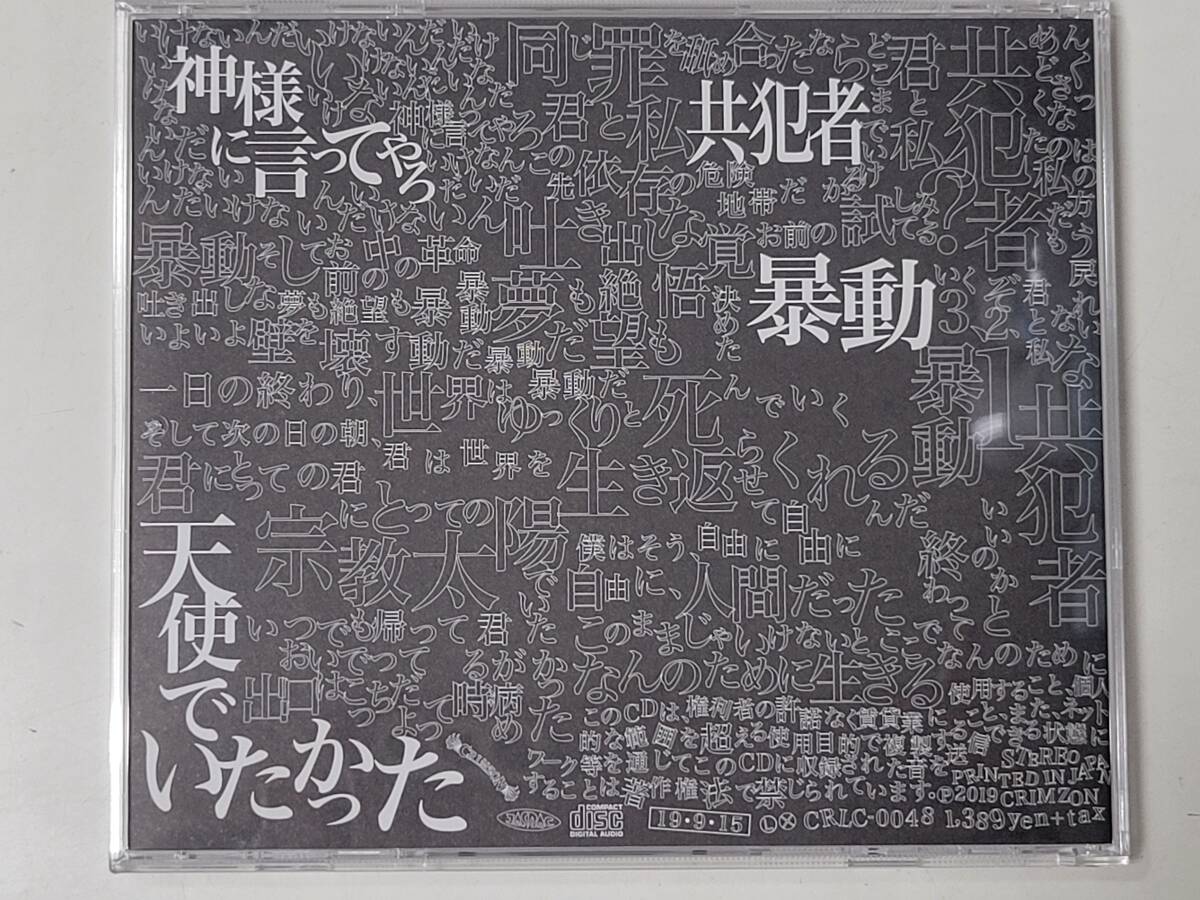 神様
に言ってやろ
共犯者
暴動
天使で
いたかった
いけないんだいけないんだ
同じ罪を舐め合ったならどこまで
君と私
共犯者
君と私の依存の
この先
危険
地帯だ
試してみる?
めんどくさくなった
吐き出しな
夢も絶望も
覚悟
決めた
お前の
暴動
暴動そしてお前の中の革命
吐き出しな夢も絶望も暴動
いよいよ壁を壊す暴動だ
暴動
暴動だ
いくぞ
3、2、1
君と私
共犯者
一日の終わり、世界はゆっくりと死んでいく
そして次の日の朝、君は世界を生き返らせてくれるんだ
君にとっての君
にとっての
宗教
太陽
でいたかった
いつでも帰って
おいでって
君が
病め
る時
出口はこっちだよって
僕はそう、自由に自由に
自由に、人間だった
このままじゃいけないとこで
終わって
いいのかと
なんのために
なんのために生きる
このCDは、権利者の許諾なく賃貸業に使用すること、個人
的な範囲を超える使用目的で複製すること、また、ネット
ワーク等を通じてこのCDに収録された音を送信できる状態に
することは著作権法で禁じられています。
STEREO
PRINTED IN JAPAN
℗2019 CRIMZON
CRIMZON
JASRAC
COMPACT
disc
DIGITAL AUDIO
19・9・15
Ⓛ
Ⓧ
CRLC-0048
1,389yen+tax